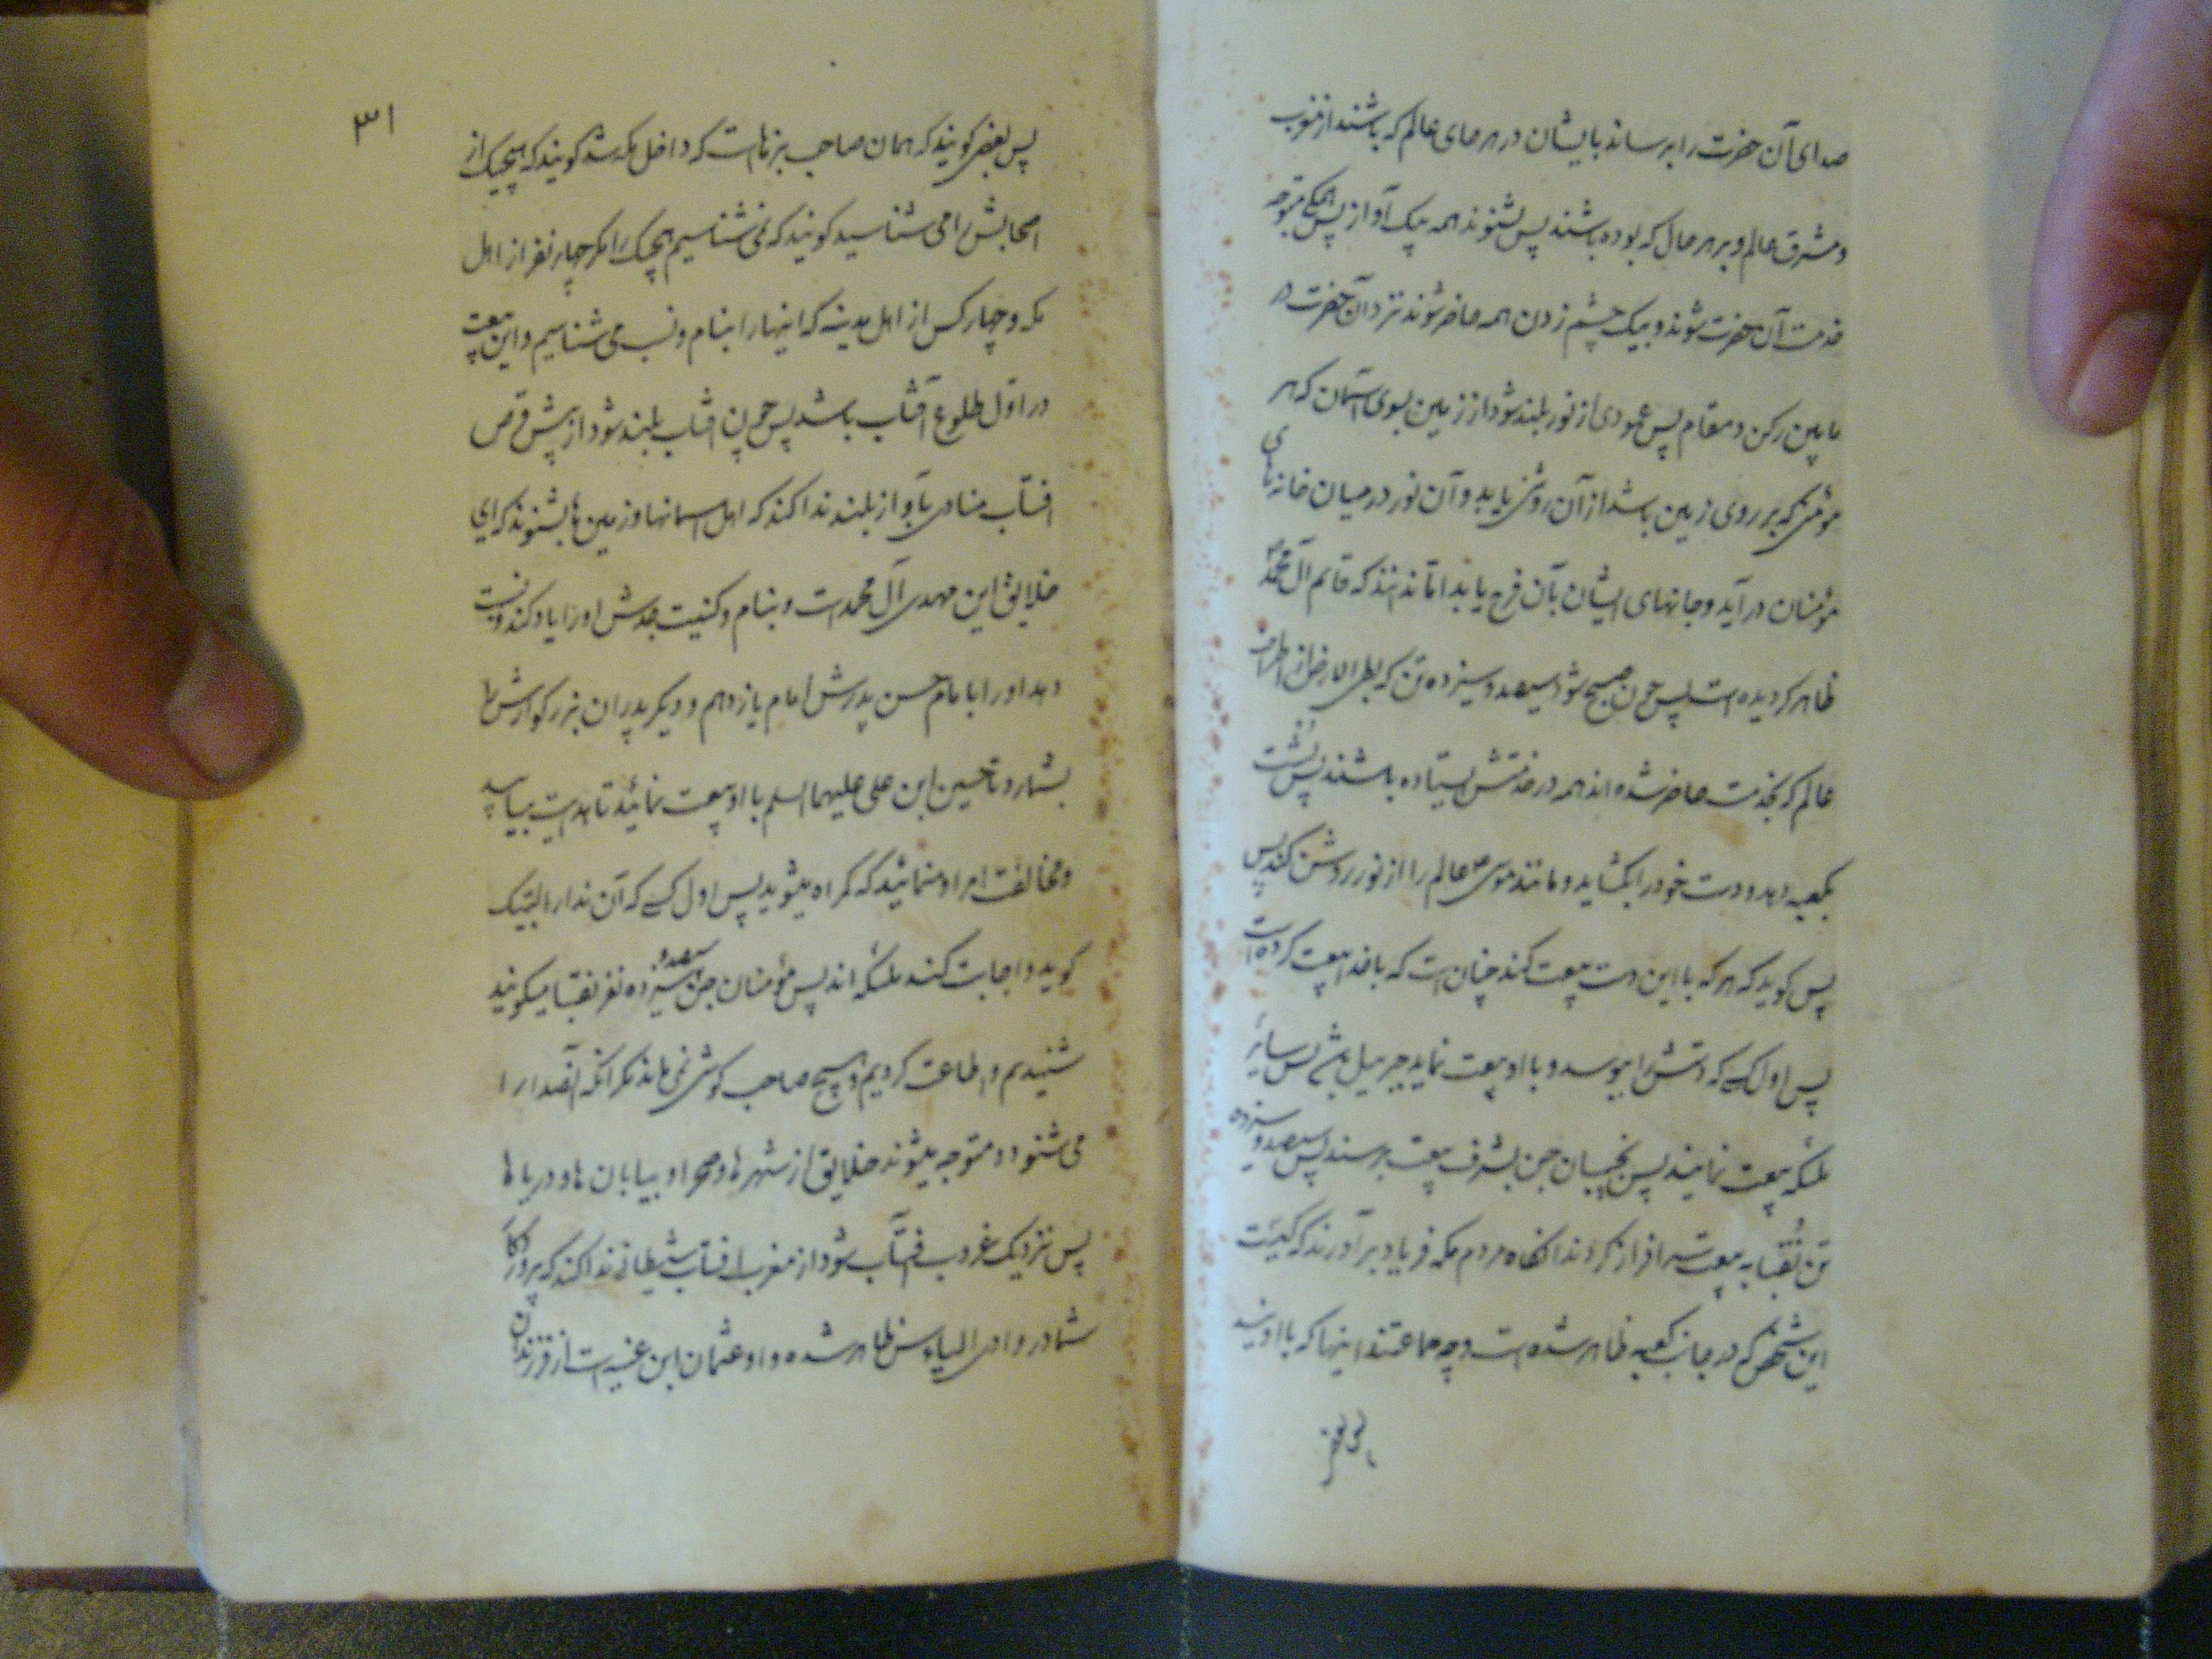 صدای آن حضرت را برساند بایشان در هر جای عالم که باشند از مغرب
و مشرق عالم و بر هر حال که بوده باشند پس بشنوند همه بیک آواز پس همگی متوجه
خدمت آن حضرت شوند و بیک چشم زدن همه حاضر شوند نزد آن حضرت در
مابین رکن و مقام پس عمودی از نور بلند شود از زمین بسوی آسمان که هر
مؤمنی که بر روی زمین باشد از آن روشنی یابد و آن نور در میان خانه‌های
مؤمنان در آید و جانهای ایشان بآن فرح یابد اما ندانند که قایم آل محمد
ظاهر کردیده است پس چون صبح شود سیصد و سیزده تن که بطی الارض از اطراف
عالم که بخدمت حاضر شده‌اند همه در خدمتش ایستاده باشند پس پشت
بکعبه دهد و دست خود را بکشاید و مانند موسی عالم را از نور روشن کند پس
پس کوید که هر که با این دست بیعت کند چنان است که با خدا بیعت کرده است
پس اول کسی که دستش را ببوسد و با او بیعت نماید جبرئیل باشد پس سایر
ملئکه بیعت نمایند پس نجیبان جن بشرف بیعت برسند پس سیصد و سیزده
تن نقبا به بیعت سرافراز کردند آنکاه مردم مکه فریاد برآورند که کیست
این شخص که در جانب کعبه ظاهر شده است و چه جماعتند اینها که با اویند
۳۱
پس بعضی کویند که همان صاحب بزهاست که داخل مکه شد کویند که هیچیک از
اصحابش را می شناسید کویند که نمی شناسیم هیچیک را مکر چهار نفر از اهل
مکه و چهار کس از اهل مدینه که اینهارا بنام و نسب می شناسیم و این بیعت
در اوّل طلوع آفتاب باشد پس چون آفتاب بلند شود از پیش قرص
افتاب منادی بآواز بلند ندا کند که اهل اسمانها و زمین ها بشنوند که ای
خلایق این مهدی آل محمد است و بنام و کنیت جدش او را یاد کند و نسبت
دهد او را بامام حسن پدرش امام یازدهم و دیکر پدران بزرکوارش را
بشمارد تا حسین ابن علی علیهما السلم با او بیعت نمائید تا هدایت بیابید
و مخالفت امر او منمائید که کمراه میشوید پس اول کسی که آن ندا را لبیک
کوید و اجابت کنند ملئکه اند پس مؤمنان جن سیصد و سیزده نفر نقبا میکویند
شنیدیم و اطاعت کردیم و هیچ صاحب کوشی نمی ماند مکر آنکه آنصدا را
می شنود و متوجه میشوند خلایق از شهرها و صحرا و بیابان ها و دریاها
پس نزدیک غروب آفتاب شود از مغرب افتاب شیطانی ندا کند که پروردکار
شما در وادی الیابس ظاهر شده و او عثمان ابن عنبسه است از فرزندان